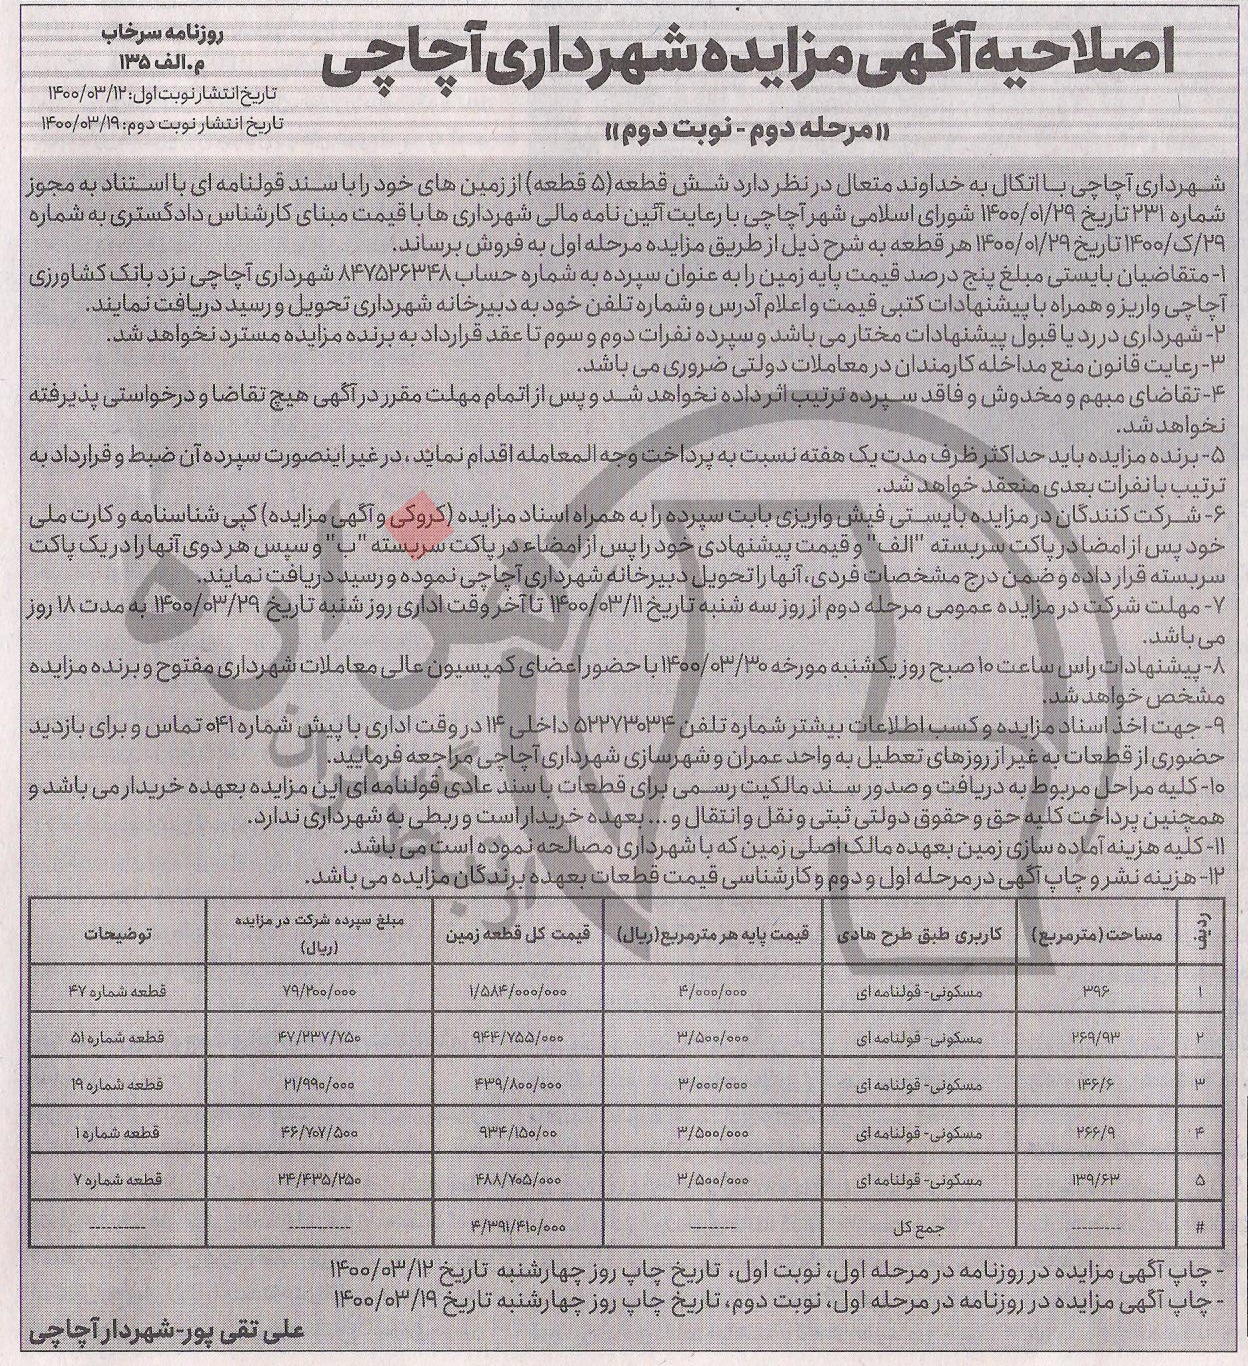 اصلاحیه آگهی مزایده شهرداری آچاچی
«مرحله دوم - نوبت دوم»
روزنامه سرخاب
م.الف ۱۳۵
تاریخ انتشار نوبت اول: ۱۴۰۰/۰۳/۱۲
تاریخ انتشار نوبت دوم: ۱۴۰۰/۰۳/۱۹
شهرداری آچاچی با اتکال به خداوند متعال در نظر دارد شش قطعه (۵ قطعه) از زمین های خود را با سند قولنامه ای با استناد به مجوز
شماره ۲۳۱ تاریخ ۱۴۰۰/۰۱/۲۹ شورای اسلامی شهر آچاچی با رعایت آئین نامه مالی شهرداری ها با قیمت مبنای کارشناس دادگستری به شماره
۲۹/ک/۱۴۰۰ تاریخ ۱۴۰۰/۰۱/۲۹ هر قطعه به شرح ذیل از طریق مزایده مرحله اول به فروش برساند.
۱- متقاضیان بایستی مبلغ پنج درصد قیمت پایه زمین را به عنوان سپرده به شماره حساب ۸۴۷۵۲۶۳۴۸ شهرداری آچاچی نزد بانک کشاورزی
آچاچی واریز و همراه با پیشنهادات کتبی قیمت و اعلام آدرس و شماره تلفن خود به دبیرخانه شهرداری تحویل و رسید دریافت نمایند.
۲- شهرداری در رد یا قبول پیشنهادات مختار می باشد و سپرده نفرات دوم و سوم تا عقد قرارداد به برنده مزایده مسترد نخواهد شد.
۳- رعایت قانون منع مداخله کارمندان در معاملات دولتی ضروری می باشد.
۴- تقاضای مبهم و مخدوش و فاقد سپرده ترتیب اثر داده نخواهد شد و پس از اتمام مهلت مقرر در آگهی هیچ تقاضا و درخواستی پذیرفته
نخواهد شد.
۵- برنده مزایده باید حداکثر ظرف مدت یک هفته نسبت به پرداخت وجه المعامله اقدام نماید، در غیر اینصورت سپرده آن ضبط و قرارداد به
ترتیب با نفرات بعدی منعقد خواهد شد.
۶- شرکت کنندگان در مزایده بایستی فیش واریزی بابت سپرده را به همراه اسناد مزایده (کروکی و آگهی مزایده) کپی شناسنامه و کارت ملی
خود پس از امضا در پاکت سربسته "الف" و قیمت پیشنهادی خود را پس از امضاء در پاکت سربسته "ب" و سپس هر دوی آنها را در یک پاکت
سربسته قرار داده و ضمن درج مشخصات فردی، آنها را تحویل دبیرخانه شهرداری آچاچی نموده و رسید دریافت نمایند.
۷- مهلت شرکت در مزایده عمومی مرحله دوم از روز سه شنبه تاریخ ۱۴۰۰/۰۳/۱۱ تا آخر وقت اداری روز شنبه تاریخ ۱۴۰۰/۰۳/۲۹ به مدت ۱۸ روز
می باشد.
۸- پیشنهادات راس ساعت ۱۰ صبح روز یکشنبه مورخه ۱۴۰۰/۰۳/۳۰ با حضور اعضای کمیسیون عالی معاملات شهرداری مفتوح و برنده مزایده
مشخص خواهد شد.
۹- جهت اخذ اسناد مزایده و کسب اطلاعات بیشتر شماره تلفن ۵۲۲۷۳۰۳۴ داخلی ۱۴ در وقت اداری با پیش شماره ۰۴۱ تماس و برای بازدید
حضوری از قطعات به غیر از روزهای تعطیل به واحد عمران و شهرسازی شهرداری آچاچی مراجعه فرمایید.
۱۰- کلیه مراحل مربوط به دریافت و صدور سند مالکیت رسمی برای قطعات با سند عادی قولنامه ای این مزایده بعهده خریدار می باشد و
همچنین پرداخت کلیه حق و حقوق دولتی ثبتی و نقل و انتقال و ... بعهده خریدار است و ربطی به شهرداری ندارد.
۱۱- کلیه هزینه آماده سازی زمین بعهده مالک اصلی زمین که با شهرداری مصالحه نموده است می باشد.
۱۲- هزینه نشر و چاپ آگهی در مرحله اول و دوم و کارشناسی قیمت قطعات بعهده برندگان مزایده می باشد.
ردیف مساحت (مترمربع) کاربری طبق طرح هادی قیمت پایه هر مترمربع (ریال) قیمت کل قطعه زمین مبلغ سپرده شرکت در مزایده (ریال) توضیحات
۱ ۳۹۶ مسکونی- قولنامه ای ۴/۰۰۰/۰۰۰ ۱/۵۸۴/۰۰۰/۰۰۰ ۷۹/۲۰۰/۰۰۰ قطعه شماره ۴۷
۲ ۲۶۹/۹۳ مسکونی- قولنامه ای ۳/۵۰۰/۰۰۰ ۹۴۴/۷۵۵/۰۰۰ ۴۷/۲۳۷/۷۵۰ قطعه شماره ۵۱
۳ ۱۴۶/۶ مسکونی- قولنامه ای ۳/۰۰۰/۰۰۰ ۴۳۹/۸۰۰/۰۰۰ ۲۱/۹۹۰/۰۰۰ قطعه شماره ۱۹
۴ ۲۶۶/۹ مسکونی- قولنامه ای ۳/۵۰۰/۰۰۰ ۹۳۴/۱۵۰/۰۰ ۴۶/۷۰۷/۵۰۰ قطعه شماره ۱
۵ ۱۳۹/۶۳ مسکونی- قولنامه ای ۳/۵۰۰/۰۰۰ ۴۸۸/۷۰۵/۰۰۰ ۲۴/۴۳۵/۲۵۰ قطعه شماره ۷
# -------- جمع کل -------- ۴/۳۹۱/۴۱۰/۰۰۰ ---------- ----------
- چاپ آگهی مزایده در روزنامه در مرحله اول، نوبت اول، تاریخ چاپ روز چهارشنبه تاریخ ۱۴۰۰/۰۳/۱۲
- چاپ آگهی مزایده در روزنامه در مرحله اول، نوبت دوم، تاریخ چاپ روز چهارشنبه تاریخ ۱۴۰۰/۰۳/۱۹
علی تقی پور-شهردار آچاچی